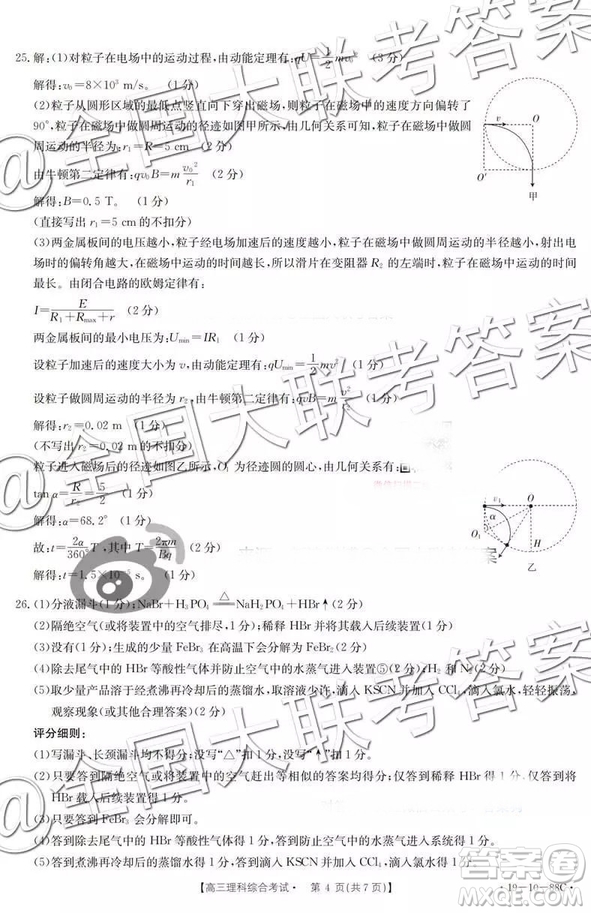 25. 解:(1)对粒子在电场中的运动过程,由动能定理有:qU=½mv₀² (3分)
解得:v₀=8×10³ m/s。 (1分)
(2)粒子从圆形区域的最低点竖直向下射出磁场,粒子在磁场中的速度方向偏转了
90°,粒子在磁场中做圆周运动的径迹如图甲所示,由几何关系可知,粒子在磁场中做圆
周运动的半径为:r₁=R=5 cm (2分)
由牛顿第二定律有:qv₀B=m v₀²/r₁ (2分)
解得:B=0.5 T。 (1分)
(直接写出 r₁=5 cm 的扣1分)
v
O
O′
甲
(3)两金属板间的电压越小,粒子经电场加速后的速度越小,粒子在磁场中做圆周运动的半径越小,粒子射出磁场
时的偏转角越大,在磁场中运动的时间越长。所以滑片在变阻器 R₂ 的左端时,粒子在磁场中运动的时间
最长。由闭合电路的欧姆定律有:
I=E/(R₁+Rmax+r) (2分)
两金属板间的最小电压为:Umin=IR₁ (1分)
设粒子加速后的速度大小为 v,由动能定理有:qUmin=½mv² (1分)
设粒子做圆周运动的半径为 r₂,由牛顿第二定律有:qvB=m v²/r₂ (1分)
解得:r₂=0.02 m (1分)
(不写出 r₂=0.02 m 的扣1分)
粒子进入磁场的径迹如图乙所示,O₁ 为径迹圆的圆心,由几何关系有:
tan α=R/r₂=5/2
解得:α=68.2° (1分)
故:t=2α/360° T,其中:T=2πm/Bq (2分)
解得:t=1.5×10⁻⁵ s。 (1分)
v₁
O
α
O₁
H
乙
26. (1)分液漏斗(1分);NaBr+H₃PO₄ =△= NaH₂PO₄+HBr↑(2分)
(2)隔绝空气(或将装置中的空气排尽,1分);稀释 HBr(或将 HBr 载入后续装置,1分)
(3)没有(1分);生成的少量 FeBr₃ 在高温下会分解为 FeBr₂(2分)
(4)除去尾气中的 HBr 等酸性气体并防止空气中的水蒸气进入装置⑤(2分);H₂ 和 N₂(2分)
(5)取少量产品溶于经煮沸再冷却后的蒸馏水,滴入 KSCN 并加入 CCl₄,滴入氯水,轻轻振荡,
观察现象(或其他合理答案)(2分)
评分细则:
(1)写漏斗、长颈漏斗均不得分;没写“△”扣1分,没写“↑”扣1分。
(2)只要答到隔绝空气或将装置中的空气排尽中的一点就得1分,只要答到稀释 HBr 或将
HBr 载入后续装置中的一点就得1分。
(3)只要答到 FeBr₃ 会分解即可。
(4)答到除去尾气中的 HBr 等酸性气体得1分,答到防止空气中的水蒸气进入装置得1分。
(5)答到经煮沸再冷却后的蒸馏水得1分,答到滴入 KSCN 并加入 CCl₄,滴入氯水得1分。
【高三理科综合考试 第 4 页(共 7 页)】
·19-10-88C·
@全国大联考答案
@全国大联考答案
@全国大联考答案